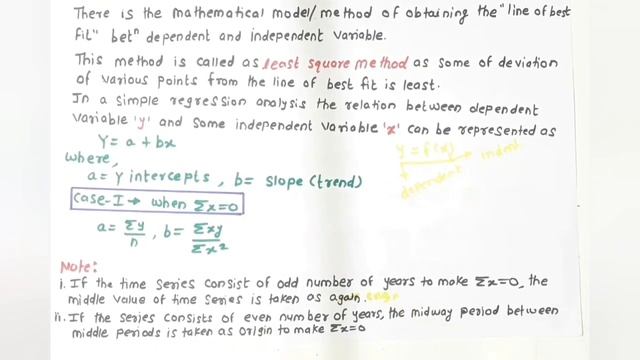 There is the mathematical model/method of obtaining the "line of best
fit" betⁿ dependent and independent variable.
This method is called as least square method as some of deviation
of various points from the line of best fit is least.
In a simple regression analysis the relation between dependent
variable 'y' and some independent variable 'x' can be represented as
Y = a + bx
Y = f(x) → indent
dependent
where,
a = Y intercepts, b = slope (trend)
Case-I → when Σx=0
a = Σy/n, b = Σxy/Σx²
Note:
i. If the time series consist of odd number of years to make Σx=0, the
middle value of time series is taken as again
ii. If the series consists of even number of years, the midway period between
middle periods is taken as origin to make Σx=0